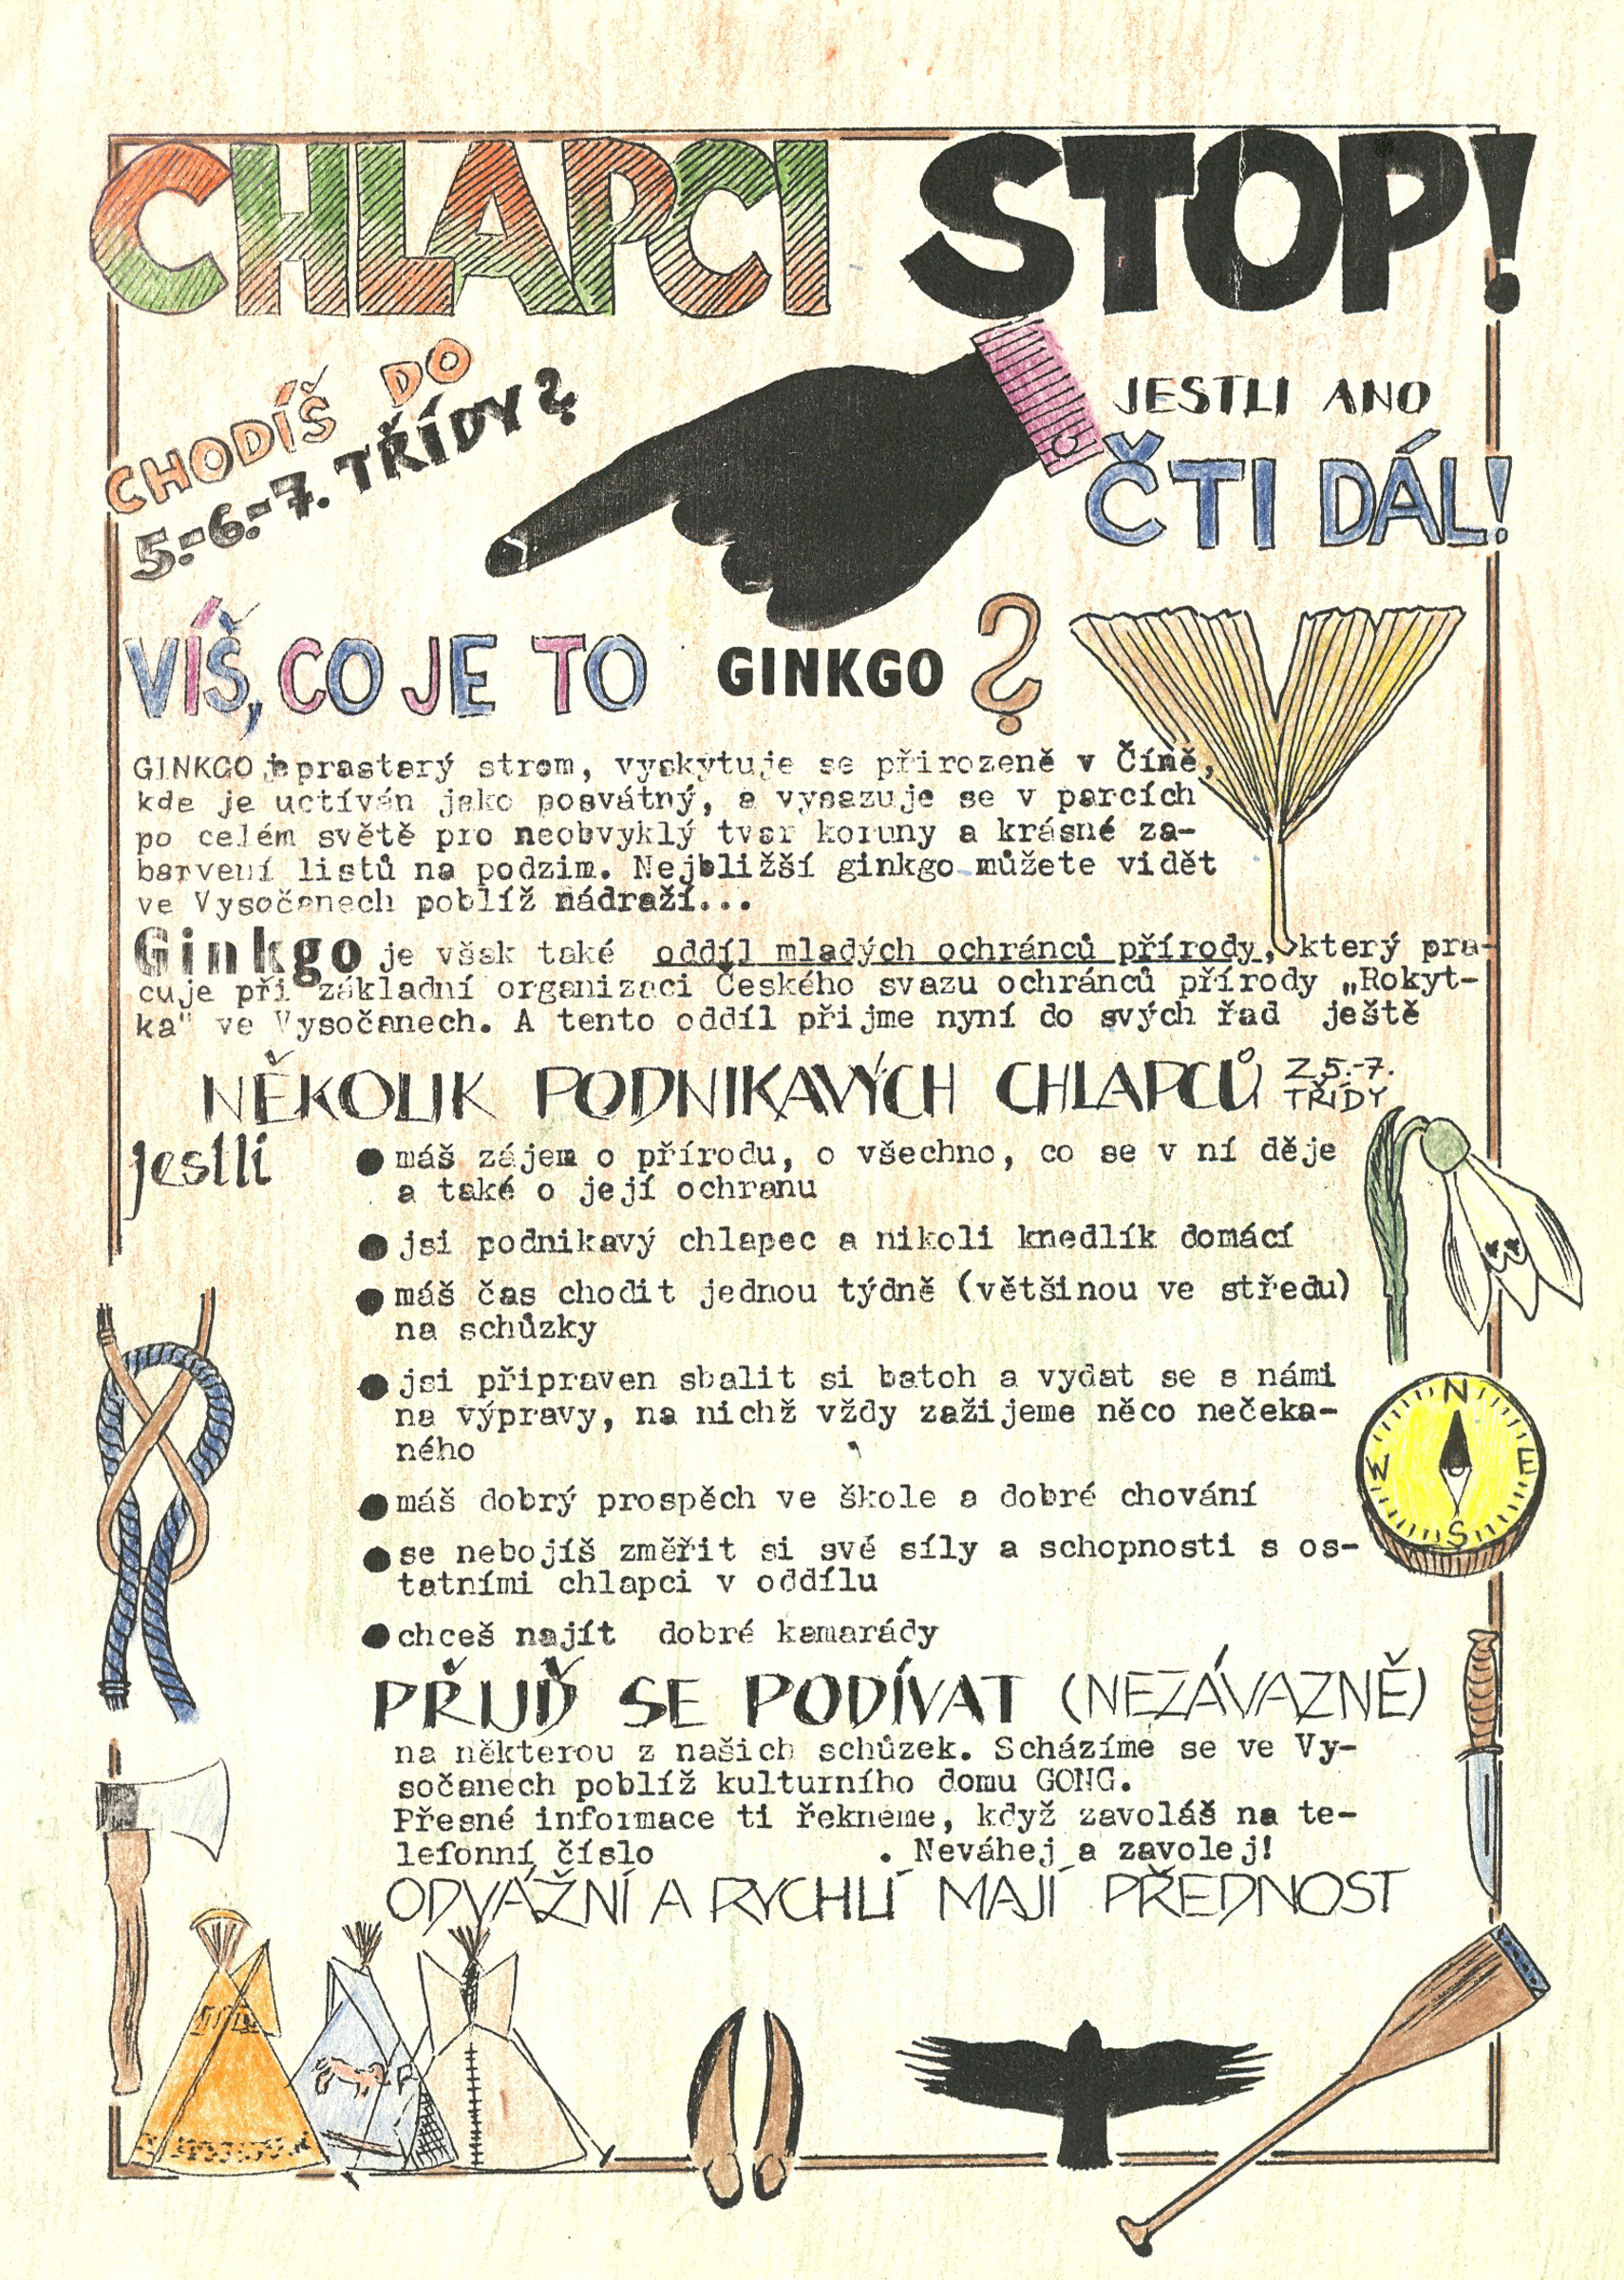 CHLAPCI STOP!
CHODÍŠ DO
5.-6.-7. TŘÍDY?
JESTLI ANO
ČTI DÁL!
VÍŠ, CO JE TO GINKGO ?
GINKGO je prastarý strom, vyskytuje se přirozeně v Číně,
kde je uctíván jako posvátný, a vysazuje se v parcích
po celém světě pro neobvyklý tvar koruny a krásné za-
barvení listů na podzim. Nejbližší ginkgo můžete vidět
ve Vysočanech poblíž nádraží...
Ginkgo je však také oddíl mladých ochránců přírody, který pra-
cuje při základní organizaci Českého svazu ochránců přírody „Rokyt-
ka" ve Vysočanech. A tento oddíl přijme nyní do svých řad ještě
NĚKOLIK PODNIKAVÝCH CHLAPCŮ Z 5.-7.
TŘÍDY
jestli
● máš zájem o přírodu, o všechno, co se v ní děje
a také o její ochranu
● jsi podnikavý chlapec a nikoli knedlík domácí
● máš čas chodit jednou týdně (většinou ve středu)
na schůzky
● jsi připraven sbalit si batoh a vydat se s námi
na výpravy, na nichž vždy zažijeme něco nečeka-
ného
● máš dobrý prospěch ve škole a dobré chování
● se nebojíš změřit si své síly a schopnosti s os-
tatními chlapci v oddílu
● chceš najít dobré kamarády
PŘIJĎ SE PODÍVAT (NEZÁVAZNĚ)
na některou z našich schůzek. Scházíme se ve Vy-
sočanech poblíž kulturního domu GONG.
Přesné informace ti řekneme, když zavoláš na te-
lefonní číslo . Neváhej a zavolej!
ODVÁŽNÍ A RYCHLÍ MAJÍ PŘEDNOST
N
E
S
W